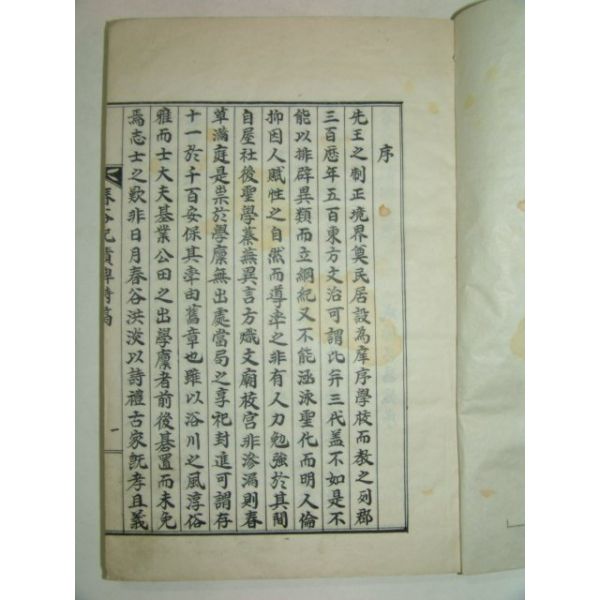 序
先王之制正境界奠民居設為庠序學校而敎之列郡
三百曆年五百東方文治可謂比并三代盖不如是不
能以排辟異類而立綱紀又不能涵泳聖化而明人倫
抑因人賦性之自然而導率之非有人力勉強於其間
自屋社後聖學蓁蕪異言方熾文廟校宮非滲漏則春
草滿庭是祟於學廩無出處當局之享祀封進可謂存
十一於千百安保其率由舊章也雖以浴川之風淳俗
雅而士大夫基業公田之出學廩者前後碁置而未免
焉志士之歎非日月春谷洪淡以詩禮古家旣孝且義
春谷紀蹟碑詩稿
一